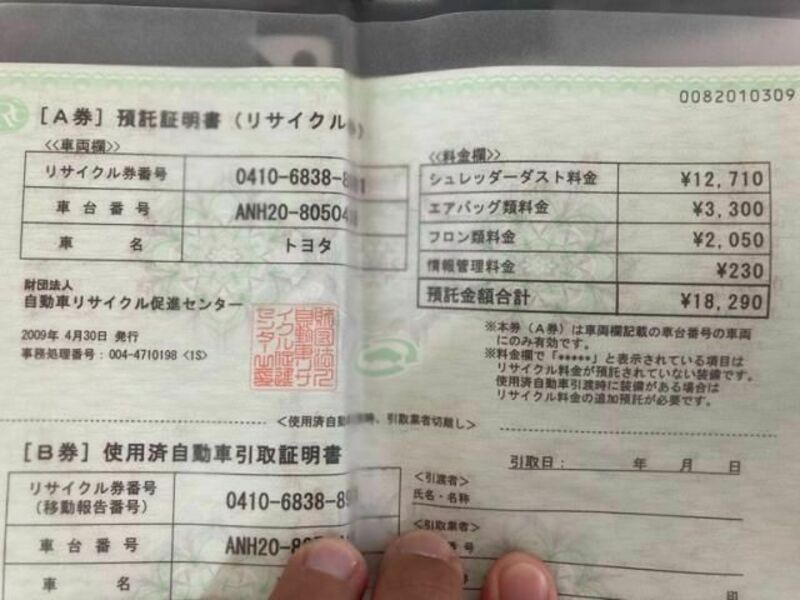 0082010309
[A券] 預託証明書 (リサイクル
<<車両欄>>
リサイクル券番号 0410-6838-8
車台番号 ANH20-8050
車名 トヨタ
財団法人
自動車リサイクル促進センター
2009年 4月30日 発行
事務処理番号:004-4710198 <1S>
<<料金欄>>
シュレッダーダスト料金 ¥12,710
エアバッグ類料金 ¥3,300
フロン類料金 ¥2,050
情報管理料金 ¥230
預託金額合計 ¥18,290
※本券(A券)は車両欄記載の車台番号の車両
にのみ有効です。
※料金欄で「*****」と表示されている項目は
リサイクル料金が預託されていない装備です。
使用済自動車引渡時に装備がある場合は
リサイクル料金の追加預託が必要です。
<使用済自動 時、引取業者切離し>
[B券] 使用済自動車引取証明書
リサイクル券番号 0410-6838-8
(移動報告番号)
車台番号 ANH20-80
車名
引取日: 年 月 日
<引渡者>
氏名・名称
<引取業者>
番号
印